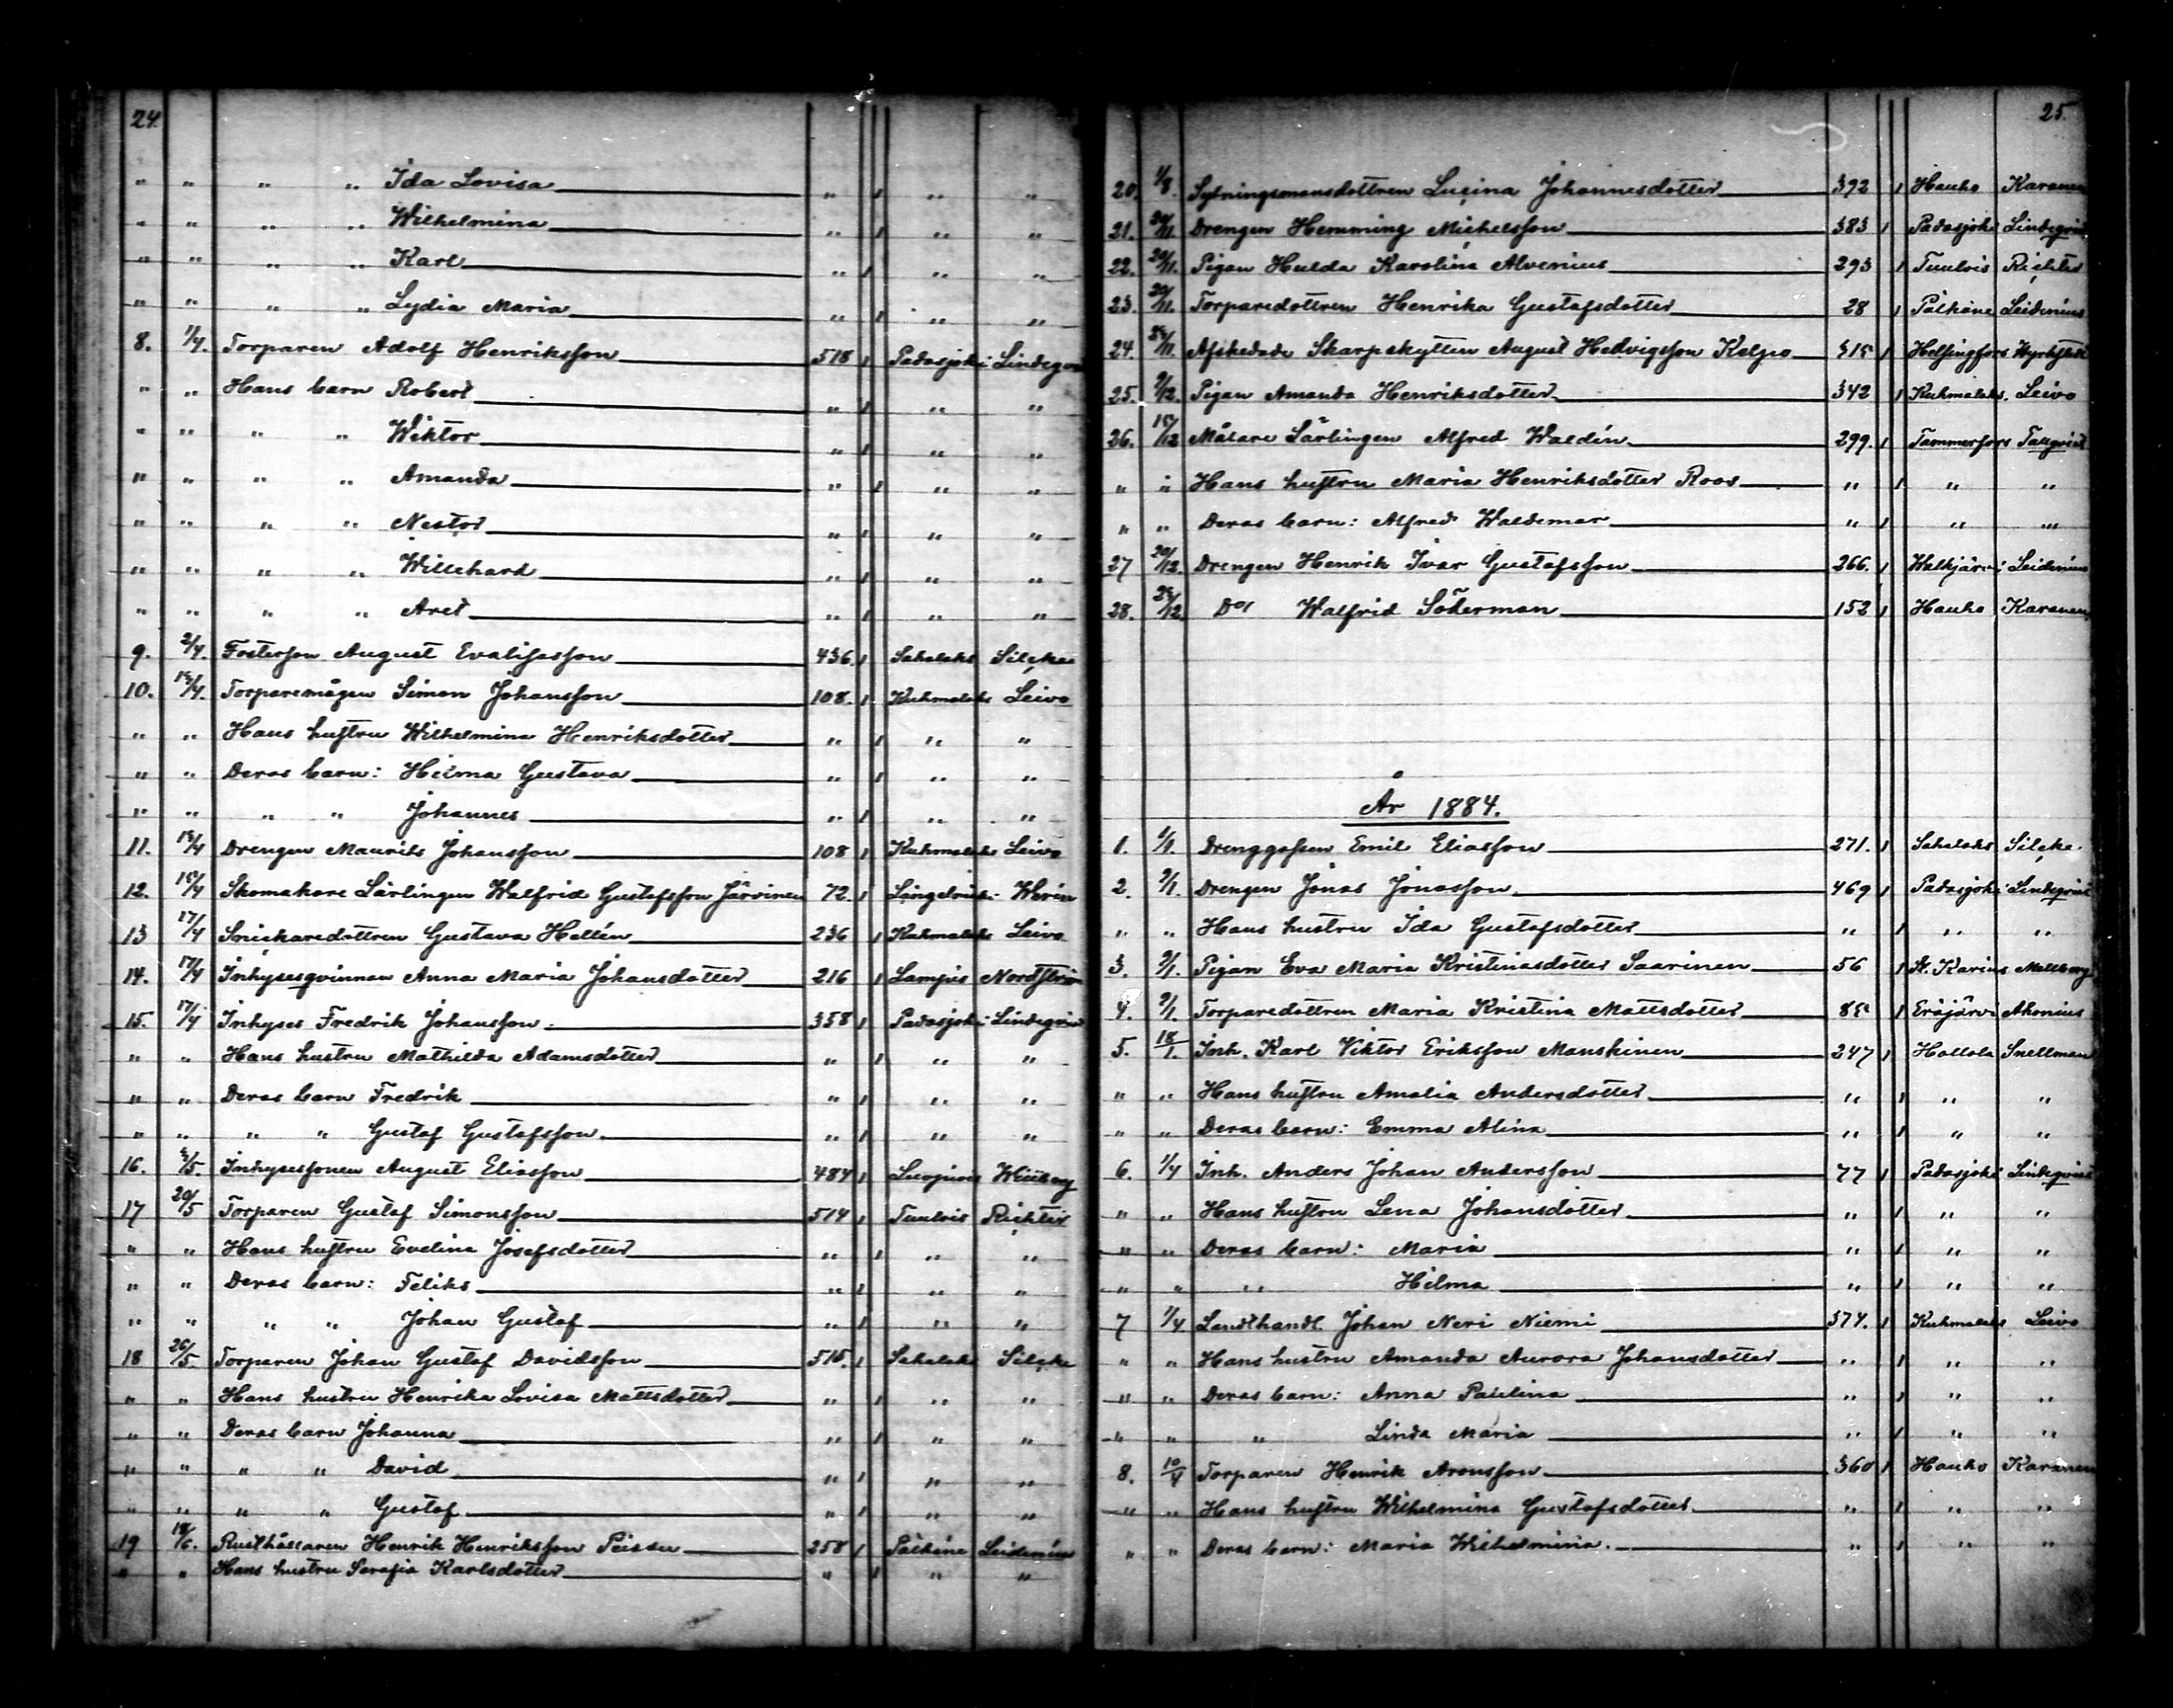 24.
" " " " Ida Lovisa " " "
" " " " Wilhelmina " " "
" " " " Karl " " "
" " " " Lydia Maria " " "
8. 1/4. Torparen Adolf Henriksson 518 1 Padasjoki
" " Hans barn Robert " " "
" " " " Wiktor " " "
" " " " Amanda " " "
" " " " Nestor " " "
" " " " Willehard " " "
" " " " Aret " " "
9. 2/4. Fosterson August Evalisasson 436. 1 Sahalaks
10. 15/4. Torparemågen Simon Johansson 108. 1 Kuhmalaks Leivo
" " Hans hustru Wilhelmina Henriksdotter " " "
" " Deras barn: Hilma Gustava " " "
" " " " Johannes " " "
11. 15/4 Drengen Maurits Johansson 108 1 Kuhmalaks Leivo
12. 15/4 Skomakare Lärlingen Walfrid Gustafsson Järvinen 72. 1
13 17/4 Snickaredottren Gustava Hellén 236 1 Kuhmalaks Leivo
14. 17/4 Inhysesqvinnan Anna Maria Johansdotter 216 1 Lampis Nordström
15. 17/4 Inhyses Fredrik Johansson 358 1 Padasjoki Lindeqvist
" " Hans hustru Mathilda Adamsdotter " " "
" " Deras barn Fredrik " " "
" " " " Gustaf Gustafsson. " " "
16. /5. Inhysessonen August Eliasson 484 1
17 20/5 Torparen Gustaf Simonsson 514 1 Tuulois Richter
" " Hans hustru Evelina Josefsdotter " " "
" " Deras barn: Feliks " " "
" " " " Johan Gustaf " " "
18 26/5. Torparen Johan Gustaf Davidsson 515. 1 Sahalaks
" " Hans hustru Henrika Lovisa Mattsdotter " " "
" " Deras barn Johanna " " "
" " " " David " " "
" " " " Gustaf " " "
19 /6. Rusthållaren Henrik Henriksson Peissu 258 1 Pälkäne Leidenius
" " Hans hustru Serafia Karlsdotter " " "
25.
20. 1/8. Sytningsmansdottren Lusina Johannesdotter 392 1 Hauho Karanen
21. 20/11. Drengen Hemming Michelsson 383 1 Padasjoki Lindeqvist
22. 20/11. Pigan Hulda Karolina Alvenius 293 1 Tuulois Richter
23. 20/11. Torparedottren Henrika Gustafsdotter 28 1 Pälkäne Leidenius
24. /11. Afskedade Skarpskytten August Hedvigsson Kelpo 515 1 Helsingfors
25. 9/12. Pigan Amanda Henriksdotter 342 1 Kuhmalaks. Leivo
26. 15/12 Målare Lärlingen Alfred Waldén 299. 1 Tammerfors
" " Hans hustru Maria Henriksdotter Roos " " "
" " Deras barn: Alfred Waldemar " " "
27 20/12. Drengen Henrik Ivar Gustafsson 266. 1 Leidenius
28. 29/12. Do: Walfrid Söderman 152 1 Hauho Karanen
År 1884.
1. Drenggossen Emil Eliasson 271. 1 Sahalaks
2. 9/1. Drengen Jonas Jonasson 469 1 Padasjoki Lindeqvist
" " Hans hustru Ida Gustafsdotter " " "
3. 9/1. Pigan Eva Maria Kristinasdotter Saarinen 56 1 St. Karins Mellberg
4. 9/1. Torparedottren Maria Kristina Mattsdotter 1 Eräjärvi Ahonius
5. 18/1. Inh. Karl Viktor Eriksson Manskinen 247 1 Hollola Snellman
" " Hans hustru Amalia Andersdotter " " "
" " Deras barn: Emma Alina " " "
6. 1/4 Inh. Anders Johan Andersson 77 1 Padasjoki Lindeqvist
" " Hans hustru Lena Johansdotter " " "
" " Deras barn: Maria " " "
" " " Hilma " " "
7 1/4 Landthandl. Johan Neri Niemi 374. 1 Kuhmalaks Leivo
" " Hans hustru Amanda Aurora Johansdotter " " "
" " Deras barn: Anna Paulina " " "
" " " Linda Maria " " "
8. 10/4 Torparen Henrik Aronsson 360 1 Hauho Karanen
" " Hans hustru Wilhelmina Gustafsdotter " " "
" " Deras barn: Maria Wilhelmina. " " "